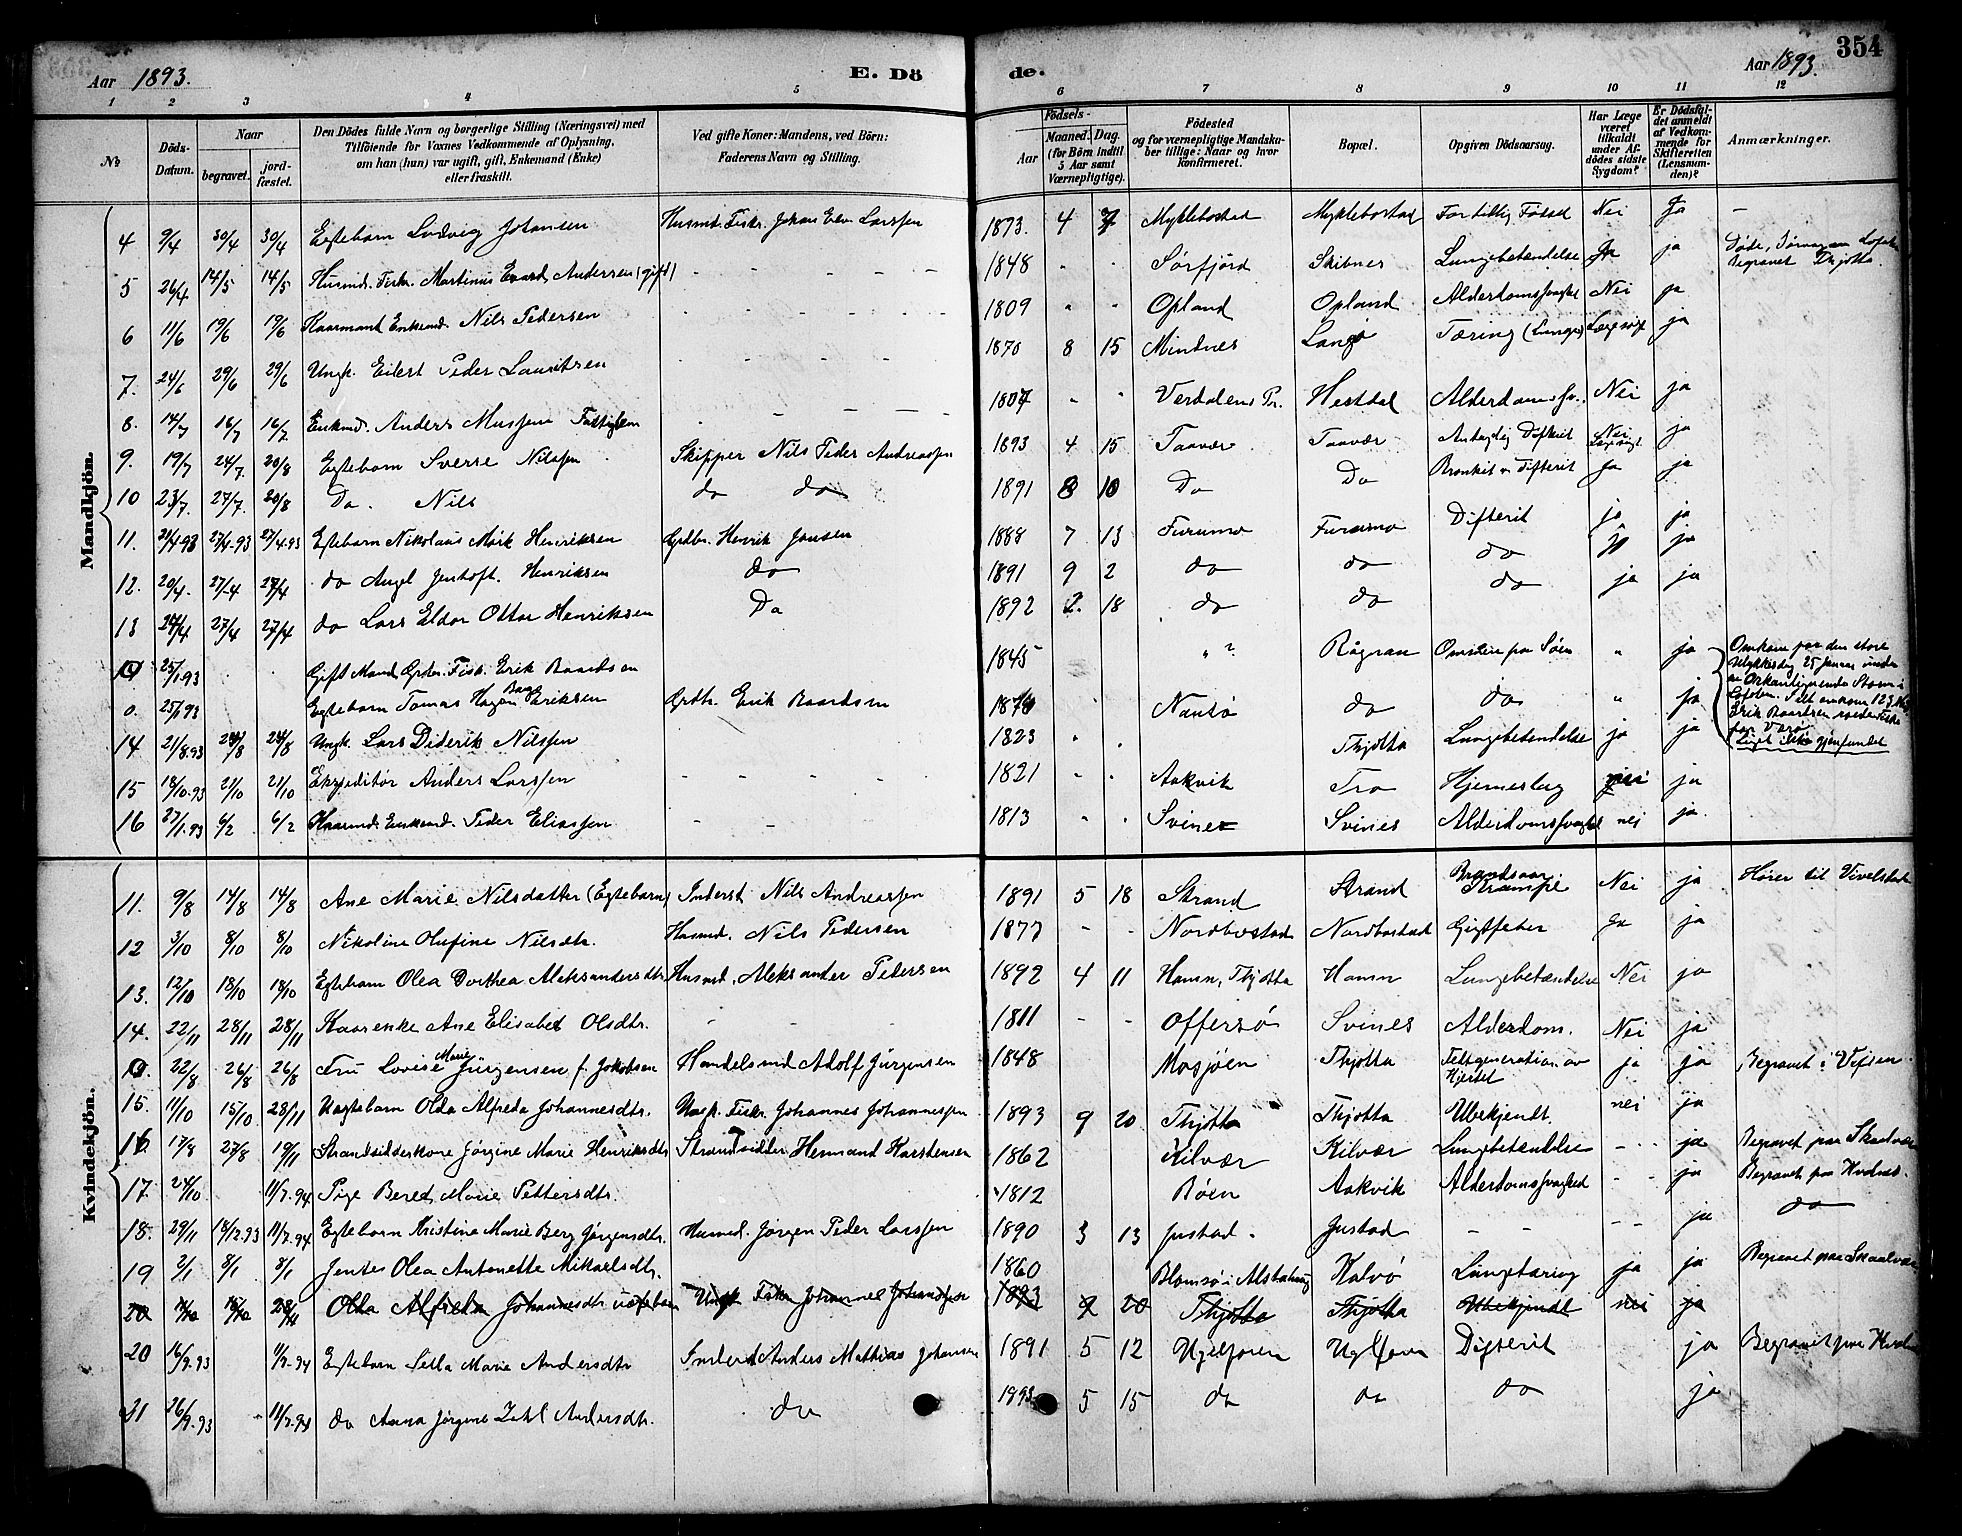 354
Aar 1893. E. Dö de. Aar 1893.
1 2 3 4 5 6 7 8 9 10 11 12
No
Döds-Datum.
Naar
begravet.
jordfæstet.
Den Dödes fulde Navn og borgerlige Stilling (Næringsvei) med Tilföiende for Voxnes Vedkommende af Oplysning, om han (hun) var ugift, gift, Enkemand (Enke) eller fraskilt.
Ved gifte Koner: Mandens, ved Börn: Faderens Navn og Stilling.
Födsels-
Aar
Maaned. Dag.
(for Börn indtil 5 Aar samt Værnepligtige).
Födested og for værnepligtige Mandskaber tillige: Naar og hvor konfirmeret.
Bopæl.
Opgiven Dödsaarsag.
Har Læge været tilkaldt under Afdödes sidste Sygdom?
Er Dödsfaldet anmeldt af Vedkommende for Skifteretten (Lensmanden)?
Anmærkninger.
Mandkjön.
4 9/4 30/4 30/4 Egtebarn Ludvig Johansen Husmd. Fisker Johan Larssen 1873. 4 7 Myklebostad Myklebostad For tidlig Födsel Nei Ja –
5 26/4 14/5 14/5 Husmd. Fisker Martinus Andersen (gift) - - - - - 1848 " " Sörfjord Skibnes Lungebetændelse Ja ja Begravet Thjotta.
6 11/6 19/6 19/6 Kaarmand Enkemd. Nils Pedersen - - - - - 1809 " " Opland Opland Alderdomssvaghed Nei ja
7. 24/6 29/6 29/6 Ungk. Eilert Peder Lauritsen - - - - - 1870 8 15 Mindnes Langö Tæring (Lunge) ja
8. 14/7 16/7 16/7 Enkmd. Anders Mussen Fattiglem - - - - 1807 " " Verdalen Hestdal Nei ja
9. 19/7 24/7. 20/8 Egtebarn Sverre Nilssen Skipper Nils Peder Andreassen 1893 4 15 Taavær Taavær Antagelig Difterit Nei ja
10 23/7. 27/7. 20/8 Do. Nils do do 1891 8 10 Do Do Bronkit Difterit Ja ja
11. 21/4.93 27/4.93 27/4.93 Egtebarn Nikolaus Henriksen Grdbr. Henrik Jonsen 1888 7 13 Furumo Furumo Difterit ja ja
12. 20/4. 27/4 27/4 do Angel Jentoft Henriksen do 1891 9 2 do do do ja ja
13 24/4 27/4 27/4 do Lars Eldor Ottar Henriksen Do 1892 2. 18 do do do ja ja
0 25/1.93 Gift Mand Fisk. Erik Baardsen 1845 " ? Omkom paa Söen " ja
0. 25/1.93 Egtebarn Tomas Hagen Eriksen Grdbr. Erik Baardsen Nautö do do " ja
Omkom paa den store Ulykkesdag 25 Januar under en Orkanlignende Storm i Lofoten. Erik Baardsen
Liget ikke gjenfundet
14 21/8.93 24/8 24/8 Ungk. Lars Diderik Nilssen 1823 " . Thjotta Lungebetændelse ja ja
15 18/10.93 21/10 21/10 Expeditör Anders Larssen - - - - 1821 " . Aakvik Tro Hjerneslag nei ja
16 27/1.93 6/2 6/2 Kaarmd. Enkemd. Peder Eliassen - - - 1813 " . Svines Svines Alderdomssvaghed nei ja.
Kvindekjön.
11. 9/8 14/8 14/8 Ane Marie Nilsdatter (Egtebarn) Inderst Nils Andreassen 1891 5 18 Strand Strand Krampe Nei ja Hörer til Vivelstad
12 3/10 8/10 8/10 Nikoline Olufine Nilsdtr. Husmd. Nils Pedersen 1877 - - Nordbostad Nordbostad Gigtfeber Ja ja
13. 12/10 18/10 18/10 Egtebarn Olea Dorthea Aleksandersdtr. Husmd. Aleksander Pedersen 1892 4 11 Hamn, Thjotta Hamn Lungebetændelse Nei ja
14. 22/11 28/11 28/11 Kaarenke Ane Elisabet Olsdtr. - - 1811 - - Offersö Svines Alderdom. Nei ja
0. 22/8 26/8 26/8 Fru Lovise Marie Jürgensen f. Jakobsen Handelsmd Adolf Jürgensen 1848 Mosjöen Thjotta Fettgeneration av Hjertet ja ja Begravet i Vefsen
15. 11/10 15/10 28/11 Uægtebarn Olda Alfreda Johannesdtr. Ungk. Fisker Johannes Johannessen 1893 9 20 Thjotta Thjotta Ubekjendt. nei ja
16 17/8 27/8 19/11 Strandsidderkone Jörgine Marie Henriksdtr Strandsidder Hermand Karstensen 1862 Kilvær Kilvær Lungebetændelse - - ja Begravet paa Skaalvær
17. 24/10 11/7.94 Pige Beret Marie Pettersdtr. 1812 Böen Aakvik Alderdomssvaghed - - ja Begravet paa Hvdnes.
18. 29/11 18/12.93 11/7.94 Egtebarn Kristine Marie Berg Jörgensdtr. Husmd. Jörgen Peder Larssen 1890 3 13 Justad. Justad - - - - ja do
19 2/1 8/1 8/1 Jentes Olea Antonette Mikaelsdtr. 1860 Blomsö i Alstahaug Kalvö Lungetæring ja ja Begravet paa Skaalvær
20 11/10 15/10 28/11 Olda Alfreda Johannesdtr uægtebarn Ungk Fisker Johannes Johannessen 1893 9 20 Thjotta Thjotta Ubekjendt nei ja
20 16/9.93 11/7.94 Egtebarn Sella Marie Andersdtr Inderst Anders Mathias Johansen 1891 5 12 Ugelforen Difterit ja Begravet paa
21 26/9.93 11/7.94 do Anna Jörgine Andersdtr. do 1893 5 15 do do do ja